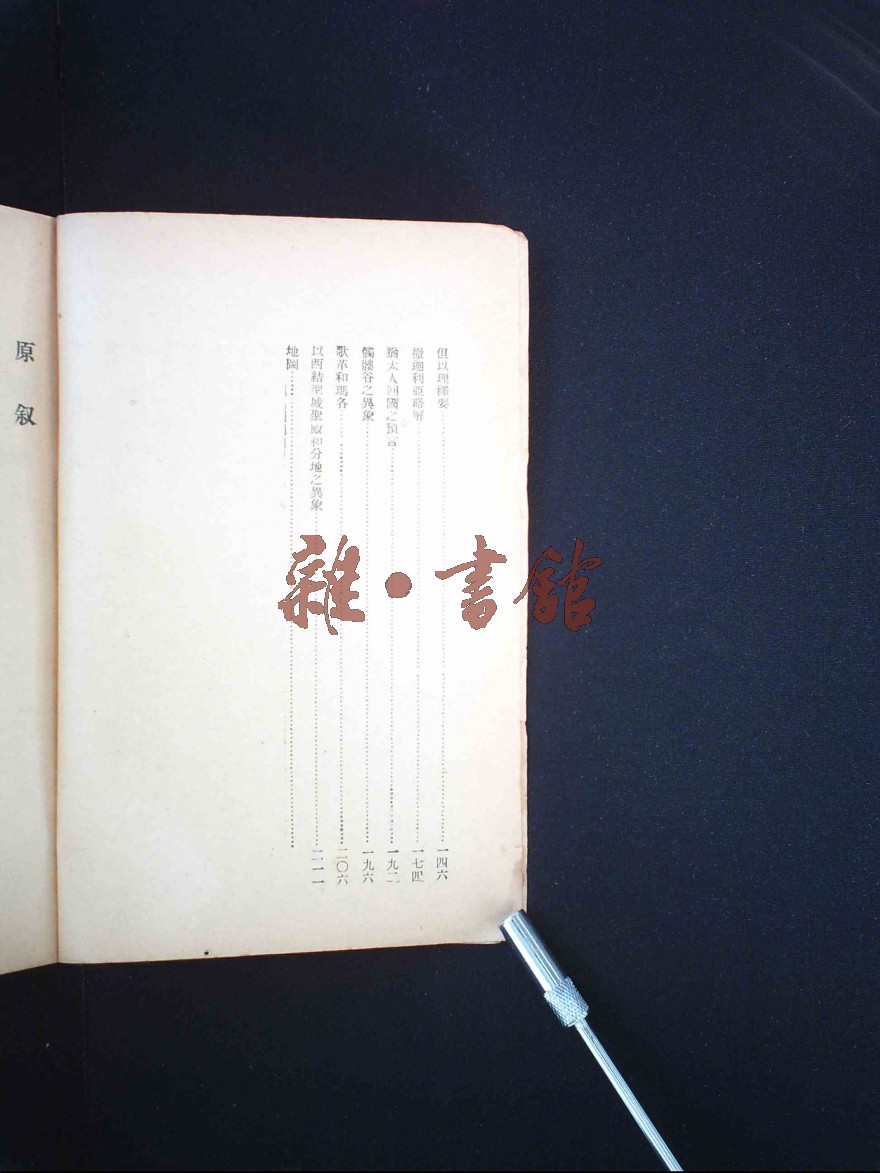 但以理釋要……一四六
撒迦利亞略解……一七四
猶太人回國之預言……一九二
髑髏谷之異象……一九六
歌革和瑪各……二〇六
以西結聖城聖殿和分地之異象……二一一
地圖……
原叙
雜·書館